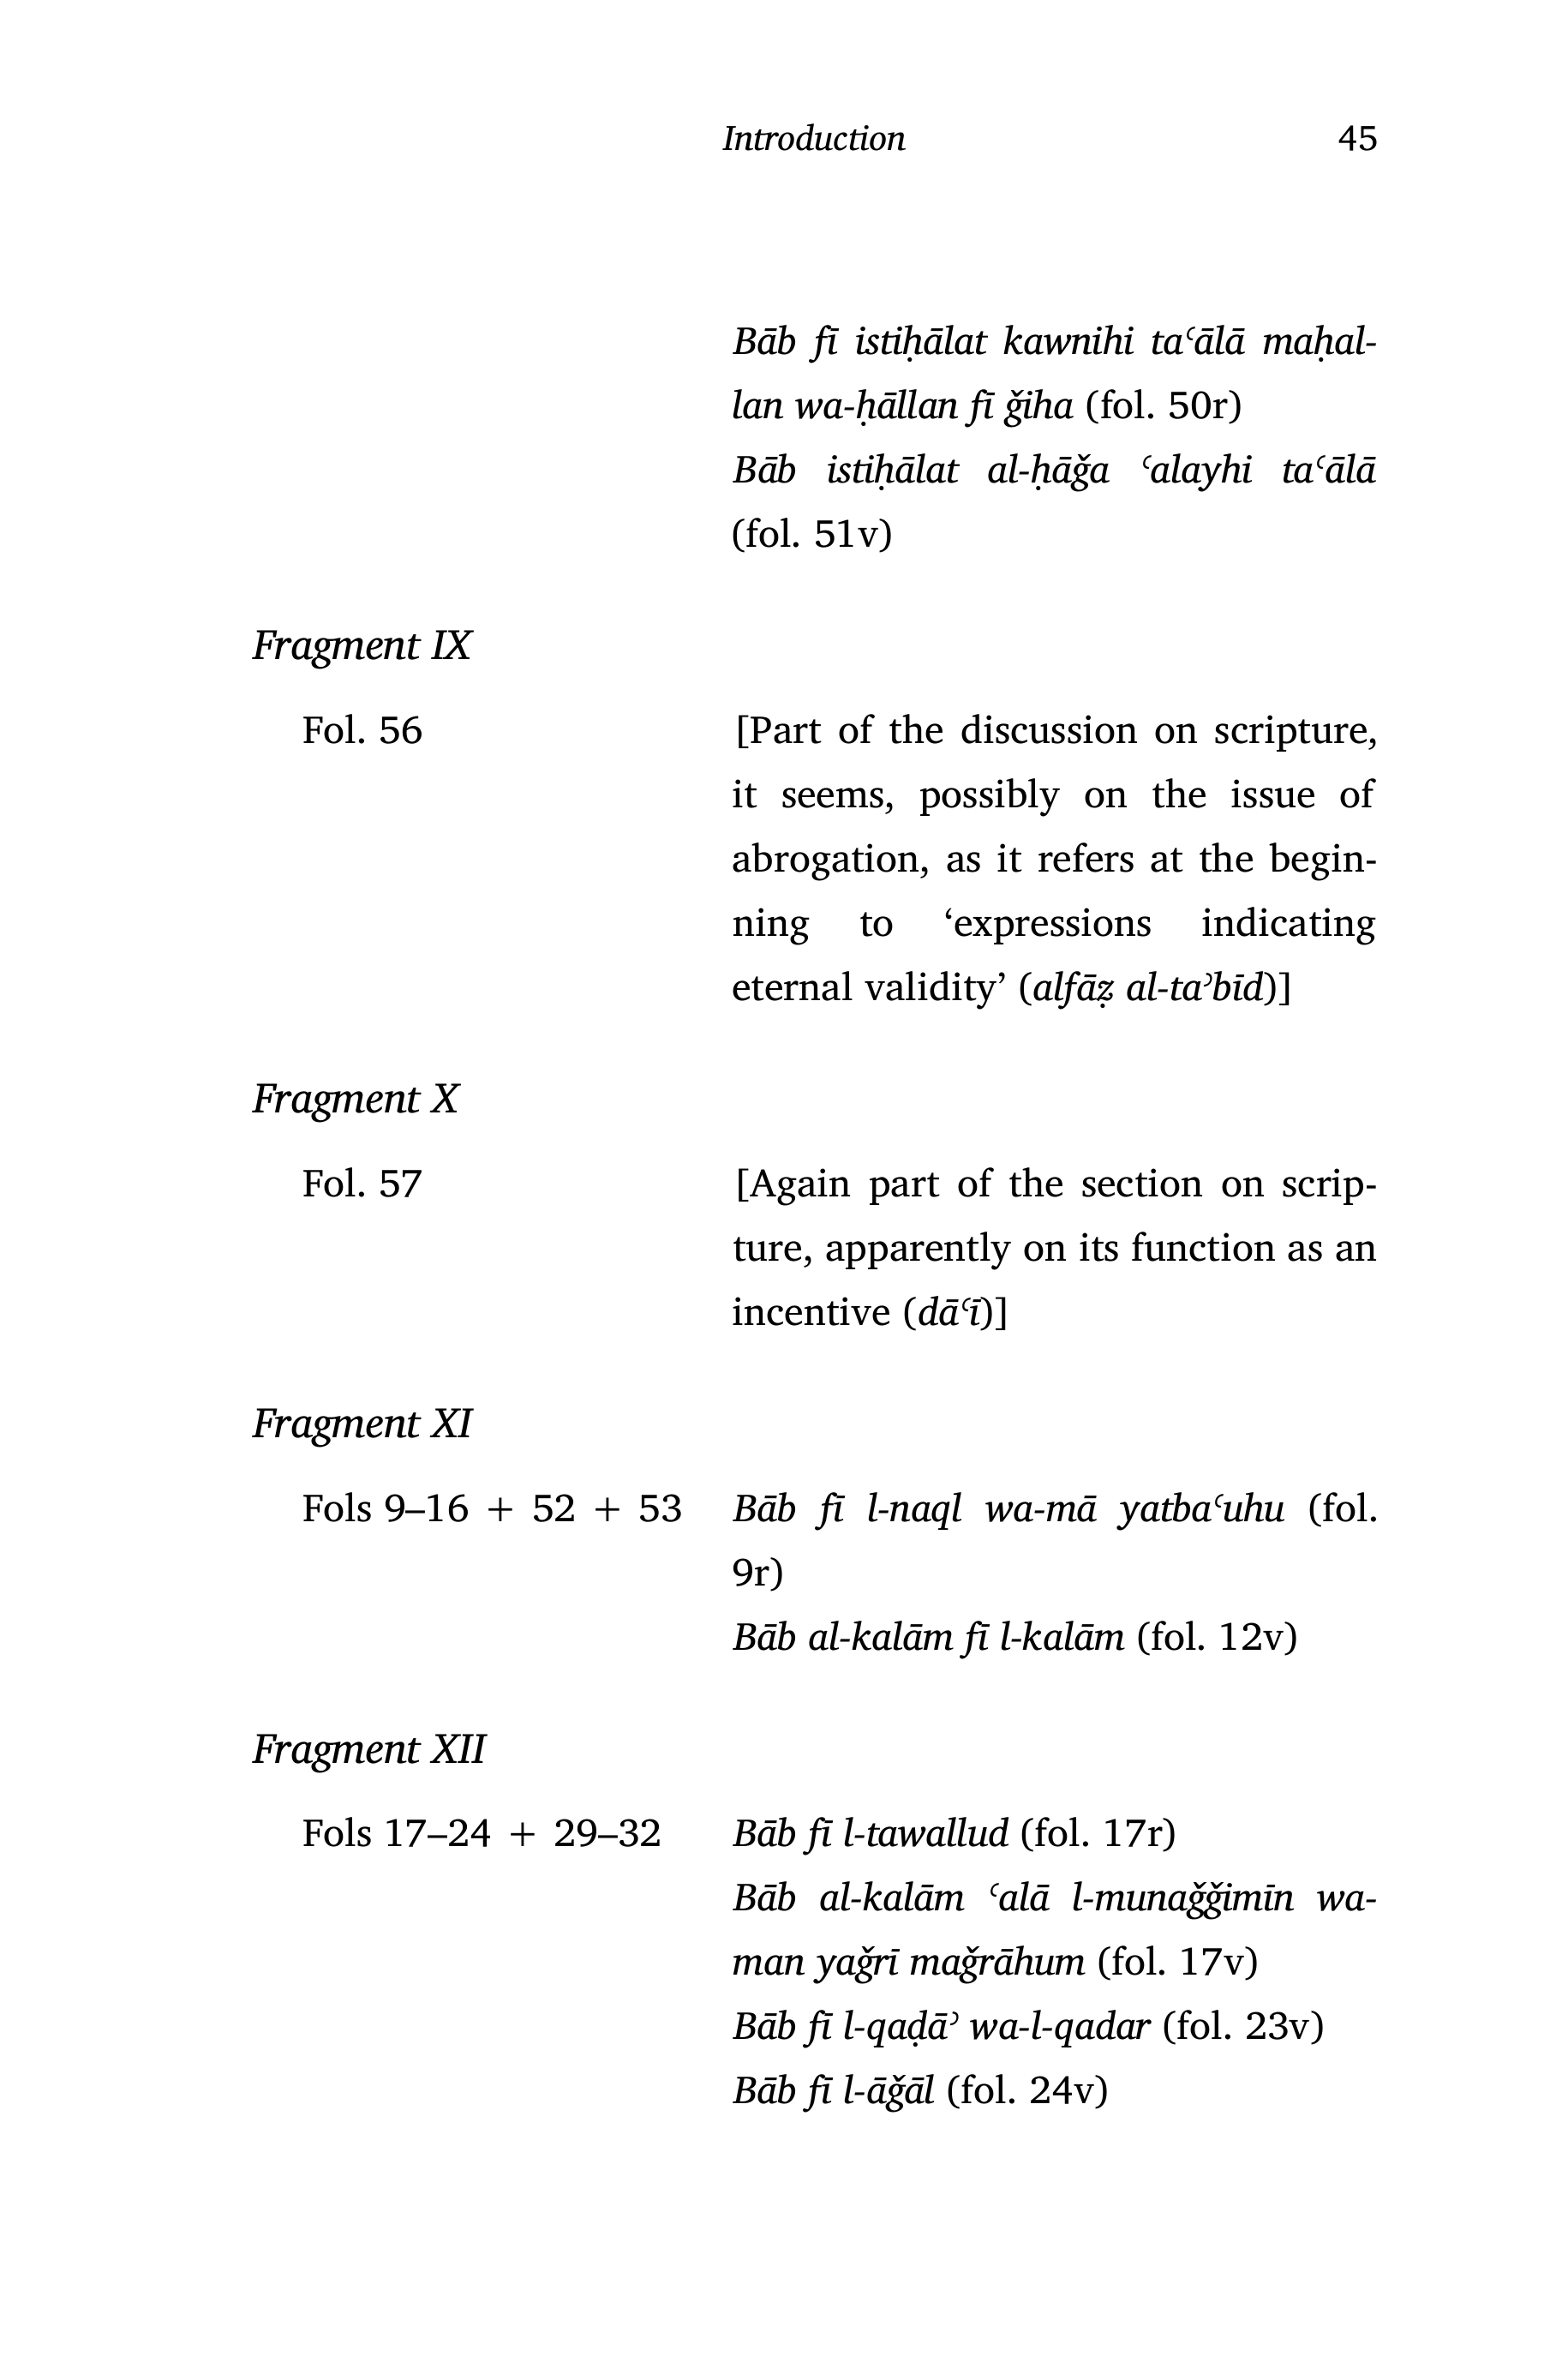 Introduction 45
Bāb fī istiḥālat kawnihi taʿālā maḥal-
lan wa-ḥāllan fī ǧiha (fol. 50r)
Bāb istiḥālat al-ḥāǧa ʿalayhi taʿālā
(fol. 51v)
Fragment IX
Fol. 56 [Part of the discussion on scripture,
it seems, possibly on the issue of
abrogation, as it refers at the begin-
ning to ‘expressions indicating
eternal validity’ (alfāẓ al-taʾbīd)]
Fragment X
Fol. 57 [Again part of the section on scrip-
ture, apparently on its function as an
incentive (dāʿī)]
Fragment XI
Fols 9–16 + 52 + 53 Bāb fī l-naql wa-mā yatbaʿuhu (fol.
9r)
Bāb al-kalām fī l-kalām (fol. 12v)
Fragment XII
Fols 17–24 + 29–32 Bāb fī l-tawallud (fol. 17r)
Bāb al-kalām ʿalā l-munaǧǧimīn wa-
man yaǧrī maǧrāhum (fol. 17v)
Bāb fī l-qaḍāʾ wa-l-qadar (fol. 23v)
Bāb fī l-āǧāl (fol. 24v)